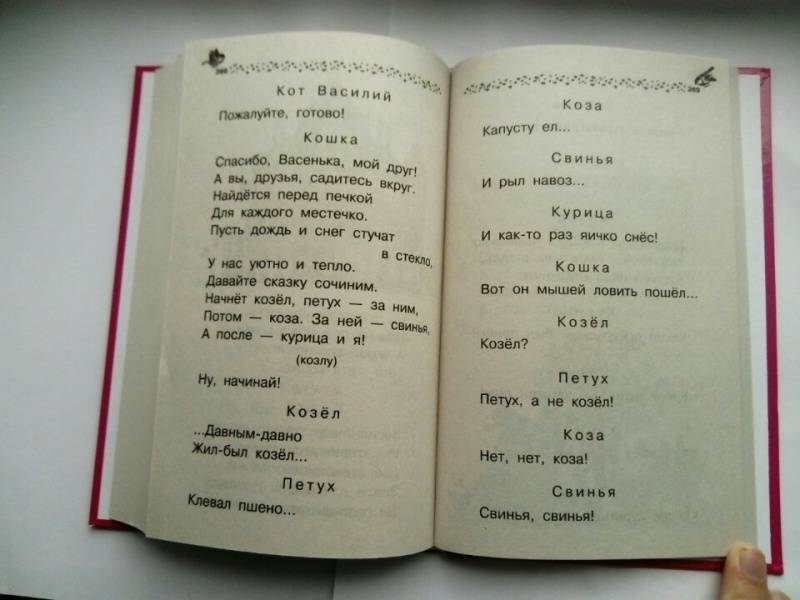 Кот Василий
Пожалуйте, готово!
Кошка
Спасибо, Васенька, мой друг!
А вы, друзья, садитесь вкруг.
Найдётся перед печкой
Для каждого местечко.
Пусть дождь и снег стучат
в стекло,
У нас уютно и тепло.
Давайте сказку сочиним.
Начнёт козёл, петух — за ним,
Потом — коза. За ней — свинья,
А после — курица и я!
(козлу)
Ну, начинай!
Козёл
...Давным-давно
Жил-был козёл...
Петух
Клевал пшено...
269
Коза
Капусту ел...
Свинья
И рыл навоз...
Курица
И как-то раз яичко снёс!
Кошка
Вот он мышей ловить пошёл...
Козёл
Козёл?
Петух
Петух, а не козёл!
Коза
Нет, нет, коза!
Свинья
Свинья, свинья!